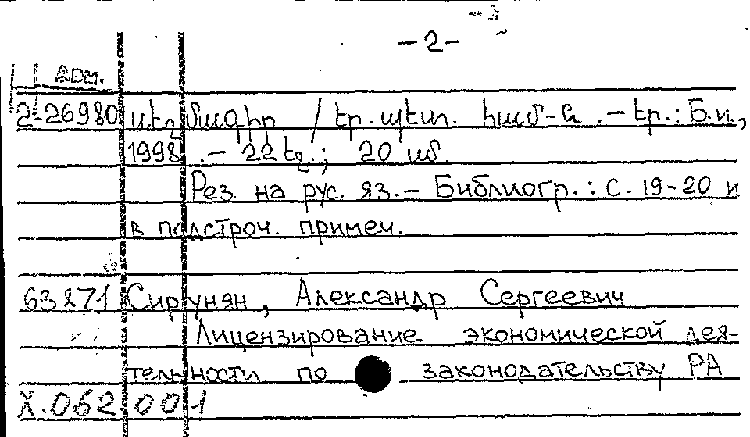 -2-
2-26980 սեղմագիր / Եր. պետ. համ-ն. - Եր.: Б.и.,
1998. - 22 էջ.; 20 սմ.
Рез. на рус. яз. - Библиогр.: с. 19-20 и
в подстроч. примеч.
63271 Сирунян, Александр Сергеевич
Лицензирование экономической дея-
тельности по законодательству РА
X.062.001